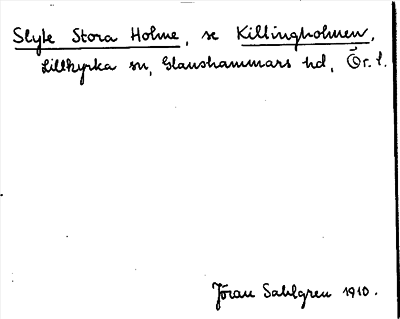 Slyte Stora Holme, se Killingholmen,
Lillkyrka sn, Glanshammars hd, Ör. l.
Jöran Sahlgren 1910.